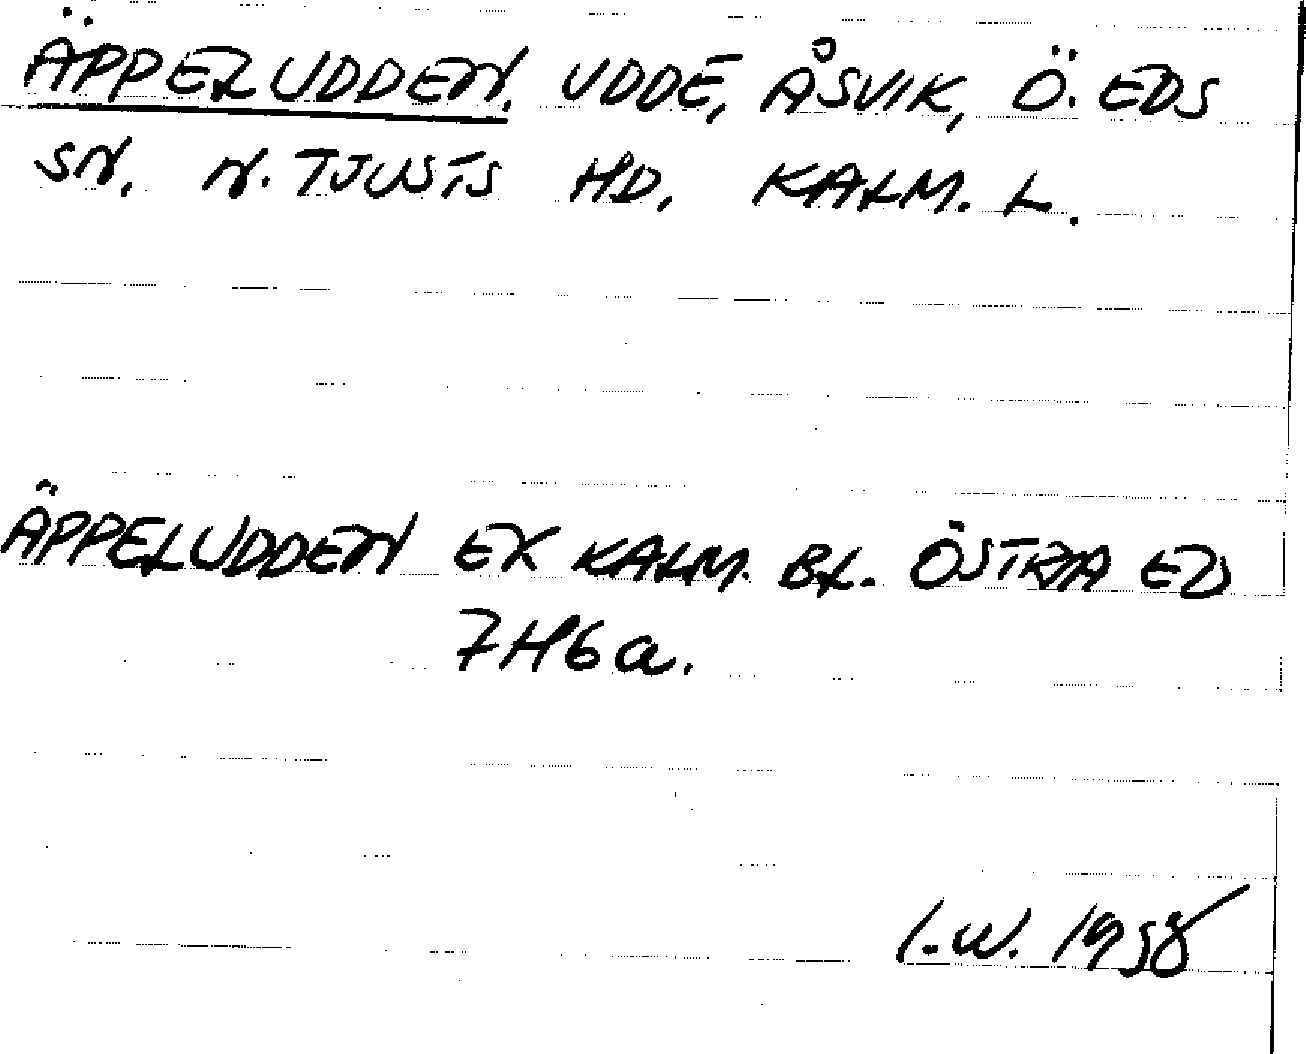 ÄPPELUDDEN, UDDE, ÅSVIK, Ö. EDS
SN. N. TJUSTS HD, KALM. L.
ÄPPELUDDEN EK KALM. BL. ÖSTRA ED
7H6a.
I.W. 1958